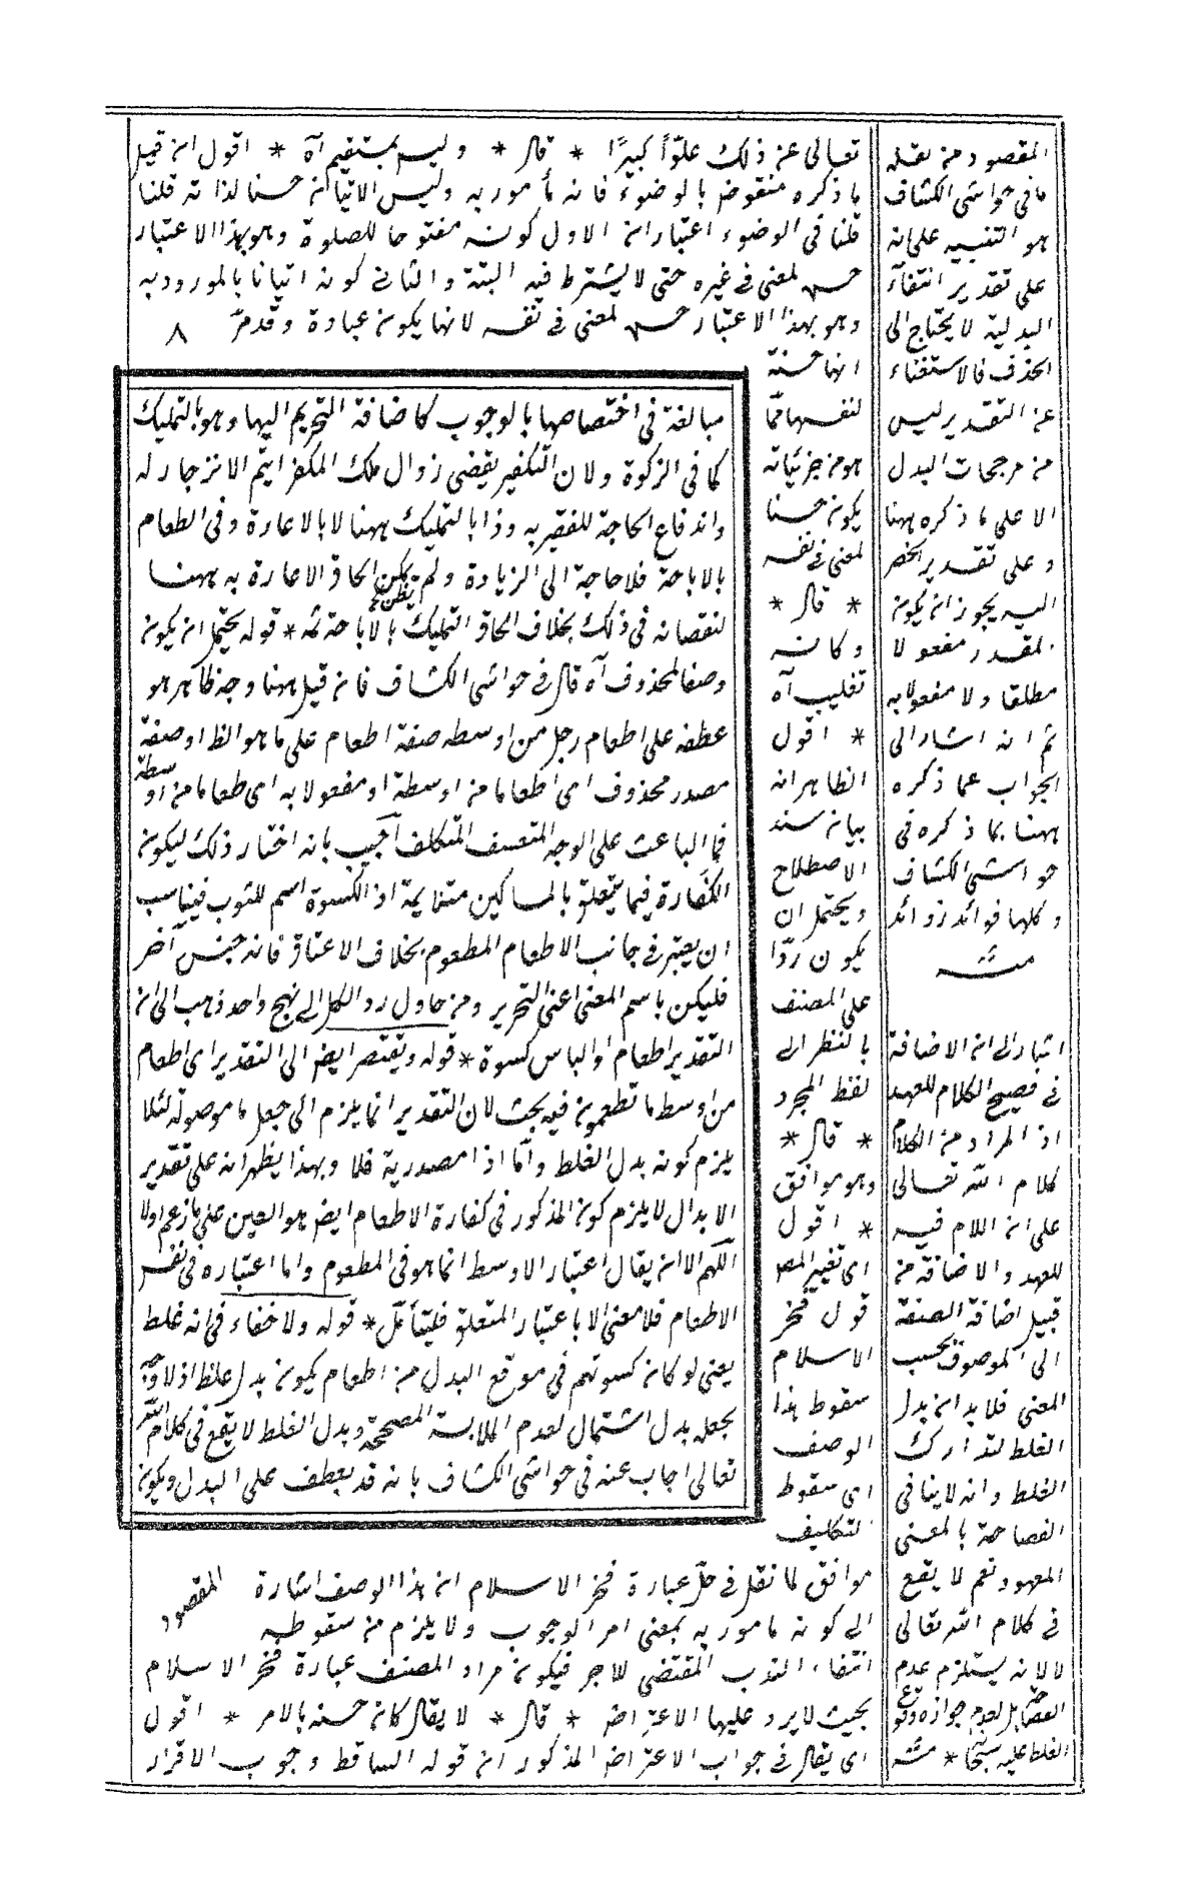 تعالى عن ذلك علوّاً كبيرًا * قال * وليس بمستقيم آه * اقول ان قيل
ما ذكره منقوض بالوضوء فانه مأمور به وليس الاتيان حسنا لذاته قلنا
قلنا فى الوضوء اعتباران الاول كونه مفتوحا للصلوة وهو بهذا الاعتبار
حسن لمعنى فى غيره حتى لا يشترط فيه البتة والثانى كونه اتيانا بالمورود به
وهو بهذا الاعتبار حسن لمعنى فى نفسه لانها يكون عبادة وقدمرّ ٨
انها حسنة
لنفسها فما
هو من جزئياته
يكون حسنا
لمعنى فى نفسه
* قال *
وكانه
تغليب آه
* اقول
الظاهر انه
بيان سند
الاصطلاح
ويحتمل ان
يكون ردّا
على المصنف
بالنظر الى
لفظ المجرد
* قال *
وهو موافق
* اقول
اى تغيير المص
قول فخر
الاسلام
سقوط هذا
الوصف
اى سقوط
التكليف
موافق لما نقل فى حلّ عبارة فخر الاسلام ان هذا الوصف اشارة
الى كونه مامور به بمعنى امر الوجوب ولا يلزم من سقوطه
انتفاء الندب المقتضى للاجر فيكون مراد المصنف عبارة فخر الاسلام
بحيث لا يرد عليها الاعتراض * قال * لا يقال كان حسنه بالامر * اقول
اى يقال فى جواب الاعتراض المذكور ان قوله الساقط وجوب الاقرار
مبالغة فى اختصاصها بالوجوب كاضافة التحريم اليها وهو بالتمليك
كما فى الزكوة ولان التكفير يقضى زوال ملك المكفر ايتم الانزجار له
واندفاع الحاجة للفقير به وذا بالتمليك ههنا لا بالاعارة وفى الطعام
بالاباحة فلا حاجة الى الزيادة ولم يكن الحاق الاعارة به ههنا
لنقصانه فى ذلك بخلاف الحاق التمليك بالاباحة ثمه * قوله يحتمل ان يكون
وصفا لمحذوف آه قال فى حواشى الكشاف فان قيل ههنا وجه ظاهر هو
عطفه على اطعام وجل من اوسطه صفة اطعام على ما هو الظ او صفة
مصدر محذوف اى اطعاما من اوسطة او مفعولا به اى طعاما من اوسطة
فما الباعث على الوجه المتعسف المتكلف اجيب بانه اختار ذلك ليكون
الكفارة فيما يتعلق بالمساكين متلايمة اذ الكسوة اسم للثوب فيناسب
ان يعتبر فى جانب الاطعام المطعوم بخلاف الاعتاق فانه جنس آخر
فليكن باسم المعنى اعنى التحرير ومن حاول رد الكل الى نهج واحد ذهب الى ان
التقدير اطعام او الباس كسوة * قوله ويقتصر ايض الى التقدير اى اطعام
من اوسط ما تطعمون فيه بحث لان التقدير انما يلزم الى جعل ما موصولة لئلا
يلزم كونه بدل الغلط وأما اذا مصدرية فلا وبهذا يظهر انه على تقدير
الابدال لا يلزم كون المذكور فى كفارة الاطعام ايض هو العين على ما زعم اولا
اللهم الا ان يقال اعتبار الاوسط انما هو فى المطعوم واما اعتباره فى نفس
الاطعام فلا معنى الا باعتبار المتعلق فليتأمل * قوله ولا خفاء فى انه غلط
يعنى لو كان كسوتهم فى موقع البدل من اطعام يكون بدل غلط اذ لا وجه
بجعله بدل اشتمال لعدم الملابسة المصححة وبدل الغلط لا يقع فى كلام الله
تعالى اجاب عنه فى حواشى الكشاف بانه قد يعطف على البدل ويكون
المقصود
المقصود من نقله
ما فى حواشى الكشاف
هو التنبيه على انه
على تقدير انتفاء
البدلية لا يحتاج الى
الحذف فالاستغناء
عن التقدير ليس
من مرجحات البدل
الا على ما ذكره ههنا
وعلى تقدير الحصر
اليه يجوز ان يكون
المقدر مفعولا
مطلقا ولا مفعولا به
ثم انه اشار الى
الجواب عما ذكره
ههنا بما ذكره فى
حواشى الكشاف
وكلها فوائد زوائد
منه
اشار الى ان الاضافة
فى فصيح الكلام للعهد
اذ المراد من الكلام
كلام الله تعالى
على ان اللام فيه
للعهد والاضافة من
قبيل اضافة الصفة
الى الموصوف بحسب
المعنى فلا بد ان بدل
الغلط لتدارك
الغلط وانه لا ينافى
الفصاحة بالمعنى
المعهود نعم لا يقع
فى كلام الله تعالى
لا لانه يستلزم عدم
الفصاحة بل لعدم جواز وقوع
الغلط عليه سبحانه * منه